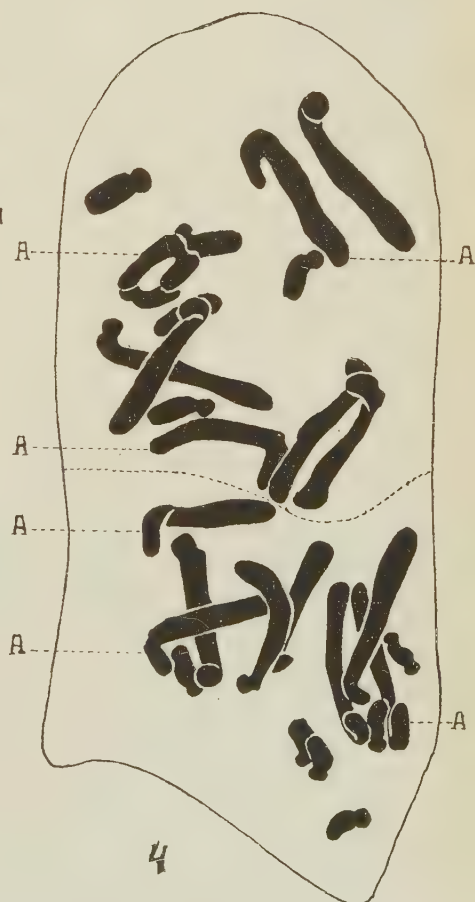 A A
A
A
A
A
4